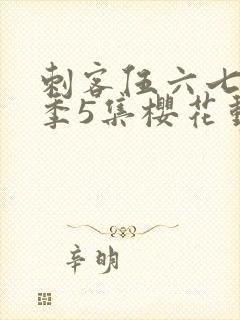 刺客伍六七
季5集樱花
辛明